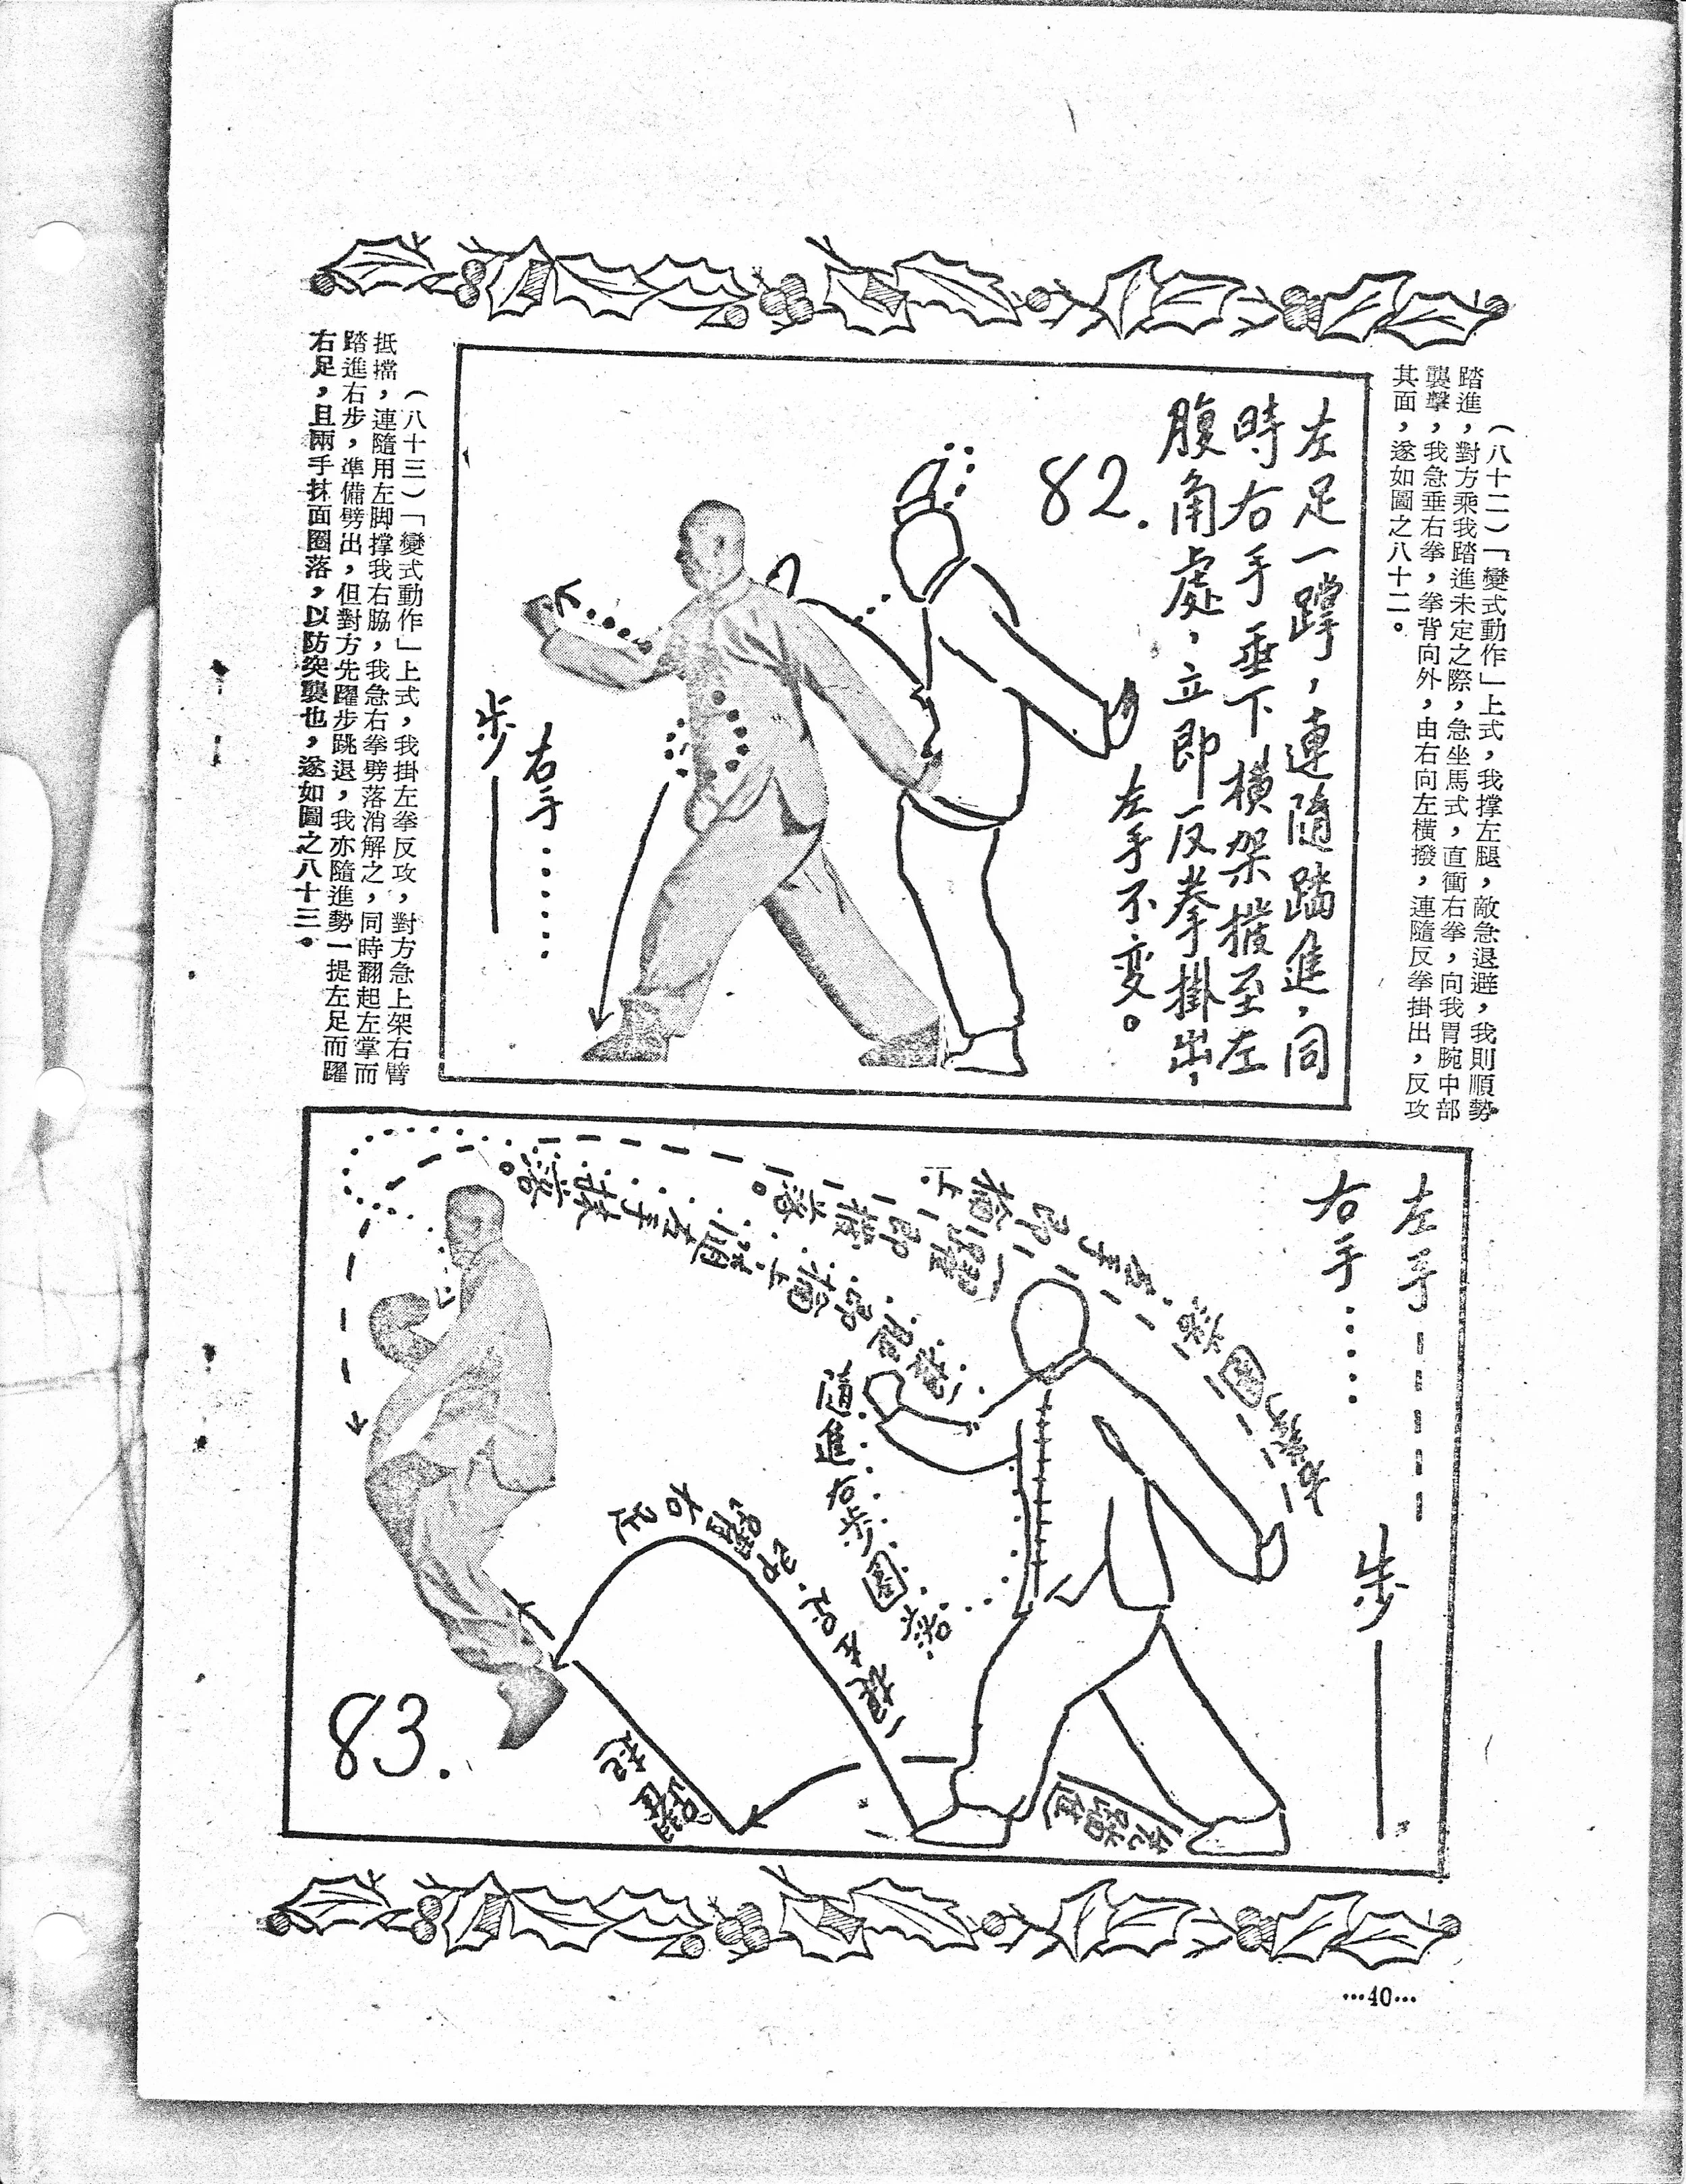 （八十二）「變式動作」上式，我撑左腿，敵急退避，我則順勢
踏進，對方乘我踏進未定之際，急坐馬式，直衝右拳，向我胃腕中部
襲擊，我急垂右拳，拳背向外，由右向左橫撥，連隨反拳掛出，反攻
其面，遂如圖之八十二。
左足一撑，連隨踏進，同
時右手垂下橫架撥至左
腹角處，立即反拳掛出，
左手不变。
82.
右手……
步——
（八十三）「變式動作」上式，我掛左拳反攻，對方急上架右臂
抵擋，連隨用左脚撑我右脇，我急右拳劈落消解之，同時翻起左掌而
踏進右步，準備劈出，但對方先躍步跳退，我亦隨進勢一提左足而躍
右足，且兩手抹面圈落，以防突襲也，遂如圖之八十三。
左手-----
右手……
步——
踏進右步圈落
一提左足即躍右足
躍起
先踏進
83.
…40…